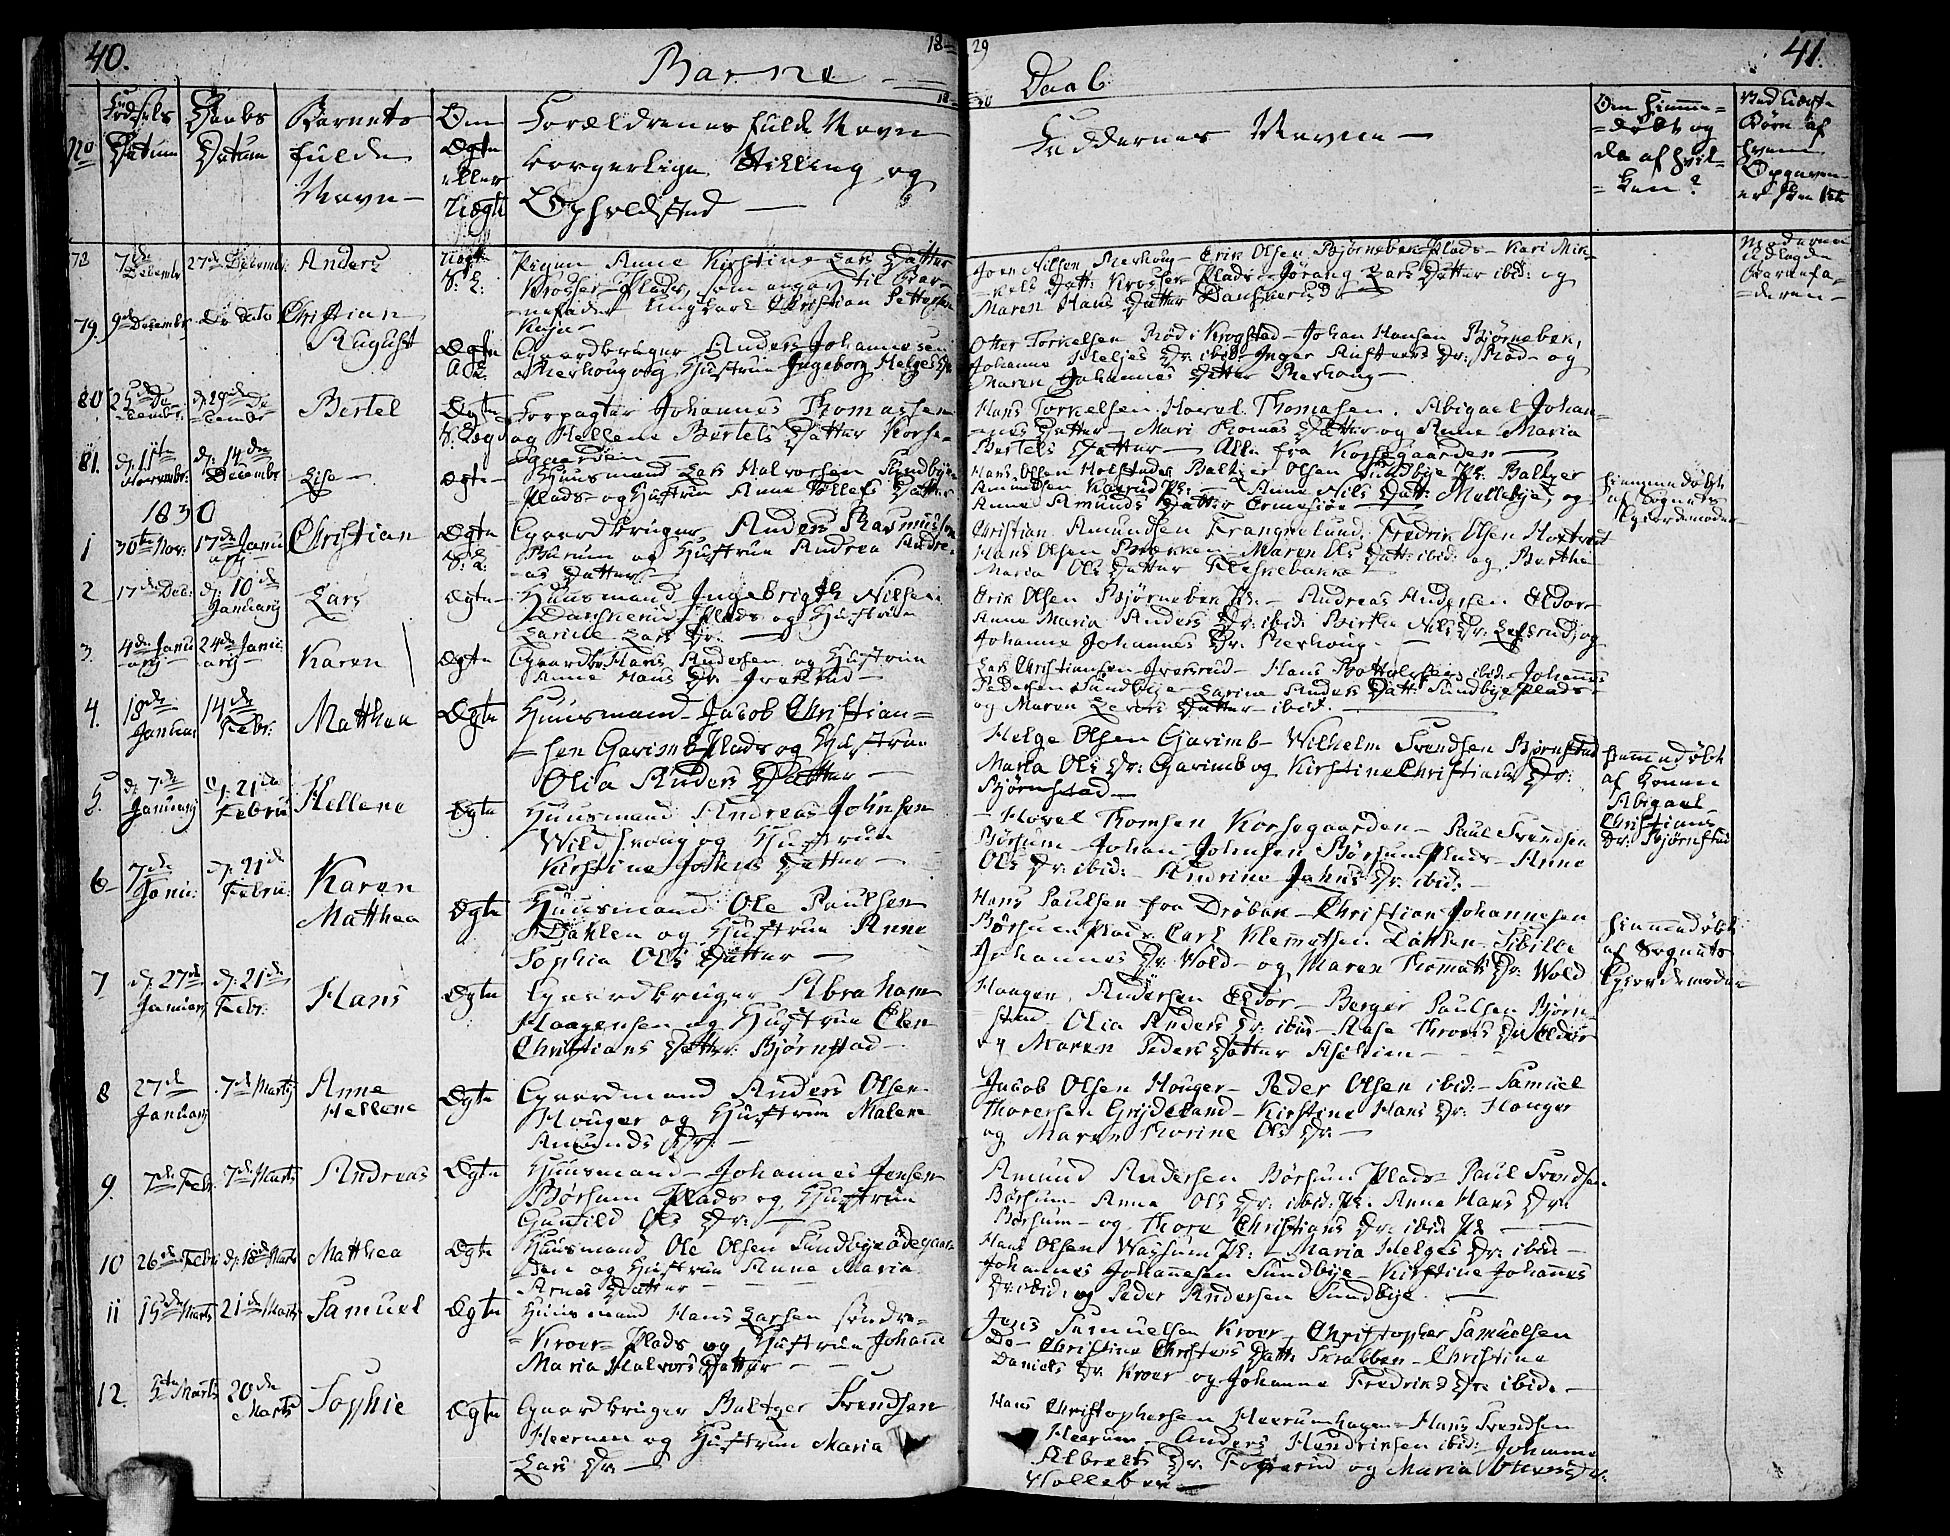 40.
Barne
18
29
Daab
41.
No
Fødsels Datum
Daabs Datum
Barnets fulde Navn
Om Ægte eller Uægte
Forældrenes fulde Navn
borgerlige Stilling og
Opholdsted
Faddernes Navne
Om Hjemme-
døbt og
da af hvil-
ken?
Ved Uægte
Børn af
hvem
Opgaven
er skeet
78
7de Decembr
27de Decembr:
Anders
Uægte
Pigen Anne Kirstine Lars Datter
Krosser Plads, som angav til Bar-
nefader Ungkarl Christian Pettersen
Joen Nilsen Nerhoug - Erik Olsen Bjørnebek Plads - Kari Mik-
kels Datt: Krosser Plads - Jørgine Lars Datter ibid: og
Maren Hans Datter Danskerud
Moderen
Udlagde
Barnefa-
deren
79.
9de Decembr
Do Dato
Christian
August
Ægte
Gaardbruger Anders Johannesen
Nerhoug og Hustrue Ingeborg Helges Dr
Otter Torkelsen Rød i Krogstad - Johan Hansen Bjørnebek,
Johanne Heljes Dr: ibid: - Inger Dr: Rød - og
Maren Johannes Datter Nerhoug
80
25de De-
cembr:
d: 29de De-
cembr
Bertel
Ægte
Forpagter Johannes Thomassen
og Hellene Bertels Datter Korse-
gaarden
Hans Torkelsen. Hovel Thomasen. Abigael Johan-
nes Datter - Mari Thomas Datter og Anne Maria
Bertels Datter - Alle fra Korsegaarden
81.
d: 11te
Novembr:
d: 14de
Decembr
Lise
Ægte
Huusmand Lars Halvorsen Sundbye
Plads og Hustrue Anne Tollefs Datter
Hans Olsen Holstad Baltzer Olsen Sundbye Pl: Baltzer
Amundsen Pl: - Anne Nils Datt: Mellebye, og
Anne Amunds Datter
Hjemmedøbt
af Sognets
Gjordemoder
1830
1
30te Nov:
17de Janu
ary
Christian
Ægte
Gaardbruger Anders Rasmussen
og Hustrue Andrea Andre-
as Datter
Christian Amundsen Frangmelund. Fredrik Olsen Hoxtvedt
Hans Olsen - Maren Ols Datt: ibid: og Berthe
Maria Ols Datter Fleskebakke
2
17de Dec:
d: 10de
January
Lars
Ægte
Huusmand Ingebrigth Nilsen
Danskerud Plads og Hustrue
Larine Lars Dr:
Erik Olsen Bjørnebek Pl: - Andreas Andersen Eldor
Anne Maria Anders Dr: ibid: Nils Dr: Lefsrud, og
Johanne Johannes Dr: Nerhoug.
3.
4de Janu
ary
24de Janu
ary
Karen
Ægte
Gaardbr Hans Andersen og Hustrue
Anne Hans Dr:
Lars Christiansen - Hans ibid: - Johannes
Pedersen Sundbye - Larine Anders Datt: Sundbye Plads
og Maren Datter ibid.
4.
18de
Januar
14de
Febr:
Matthea
Ægte
Huusmand Jacob Christian=
sen Garimb Plads og Hustrue
Olia Anders Datter
Helge Olsen Garimb - Wilhelm Svendsen Bjørnstad
Maria Ols Dr: Garimb og Kirstine Christians Dr:
Bjørnstad
Hjemmedøbt
af Konen
Abigael
Christians
Dr: Bjørnstad
5.
d: 7de
January
d: 21de
Febru
Hellene
Ægte
Huusmand Andreas Johnsen
Wildhoug og Hustrue
Kirstine Datter
Hovel Thomsen Korsegaarden - Paul Svendsen
Børsum - Johan Johnsen Børsum Plads - Anne
Ols Dr: ibid: - Andrine Dr: ibid:
6
7de
Janu:
d: 21
Febru:
Karen
Matthea
Ægte
Huusmand Ole Paulsen
Dahlen og Hustrue Anne
Sophia Ols Datter
Hans Paulsen fra Drøbak - Christian Johannesen
Børsum Plads Carl Klemmetsen Dahlen - Sibille
Johannes Dr: Wold - og Maren Thomas Dr: Wold
Hjemmedøbt
af Sognets
Gjordemoder
7
d: 27de
January
d: 21de
Febr:
Hans
Ægte
Gaardbruger Abraham
Haagensen og Hustrue Elen
Christians Datter: Bjørnstad
Haagen Andersen Eldor - Berger Paulsen Bjørn
stad - Olia Anders Dr: ibid - Dr: Eldor
og Maren Peders Datter
8
27de
January
7de Martz
Anne
Hellene
Ægte
Gaardmand Anders Olsen
Houger og Hustrue Malene
Amunds Dr:
Jacob Olsen Houger - Peder Olsen ibid: - Samuel
Thoresen Grydeland - Kirstine Hans Dr: Houger
og Maren Thorine Ols Dr:
9.
7de Febr
7de Marts
Andreas
Ægte
Huusmand Johannes Jensen
Børsum Plads og Hustrue
Gunild Ols Dr:
Amund Andersen Børsum Plads - Paul Svendsen
Børsum - Anne Ols Dr: ibid: Pl: Anne Hans Dr:
Børsum - og Thore Christians Dr: ibid Pl
10
26de Febr
d: 18de Marts
Matthea
Ægte
Huusmand Ole Olsen Sundbyeødegaar
den og Hustrue Anne Maria
Arnes Datter
Hans Olsen Pl: - Maria Helges Dr: ibid -
Johannes Johannesen Sundbye Kirstine Johannes
Dr: ibid: og Peder Andersen Sundbye.
11
15de Marts
21de Marts
Samuel
Ægte
Huusmand Hans Larsen søndre-
Kroer Plads og Hustrue Johanne
Maria Halvors Datter
Jens Samuelsen Kroer, Christopher Samuelsen
Christine Christens Datt: Skrabben - Christine
Daniels Dr: Kroer og Johanne Fredriks Dr: ibid:
12.
5te Marts
20de
Marts
Sophie
Ægte
Gaardbruger Baltzer Svendsen
Heerum og Hustrue Maria
Lars Dr:
Hans Christophersen Heerumhagen - Hans Svendsen
Heerum - Anders Hendriksen ibid: - Johanne
Albrets Dr: Fosterud og Maria Dr:
Hollebek